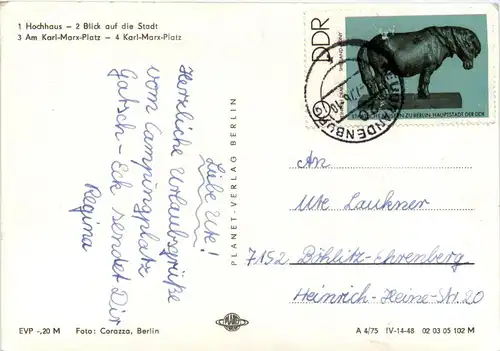 1 Hochhaus – 2 Blick auf die Stadt
3 Am Karl-Marx-Platz – 4 Karl-Marx-Platz
Liebe Ute!
Herzliche Urlaubsgrüße
vom Campingplatz
Gatsch-Eck sendet Dir
Regina
PLANET-VERLAG BERLIN
DDR
SHETLAND-PONY
STAATLICHE MUSEEN ZU BERLIN, HAUPTSTADT DER DDR
An
Ute Laukner
7152 Böhlitz-Ehrenberg
Heinrich-Heine-Str. 20
EVP -,20 M
Foto: Corazza, Berlin
PLANET
A 4/75
IV-14-48
02 03 05 102 M